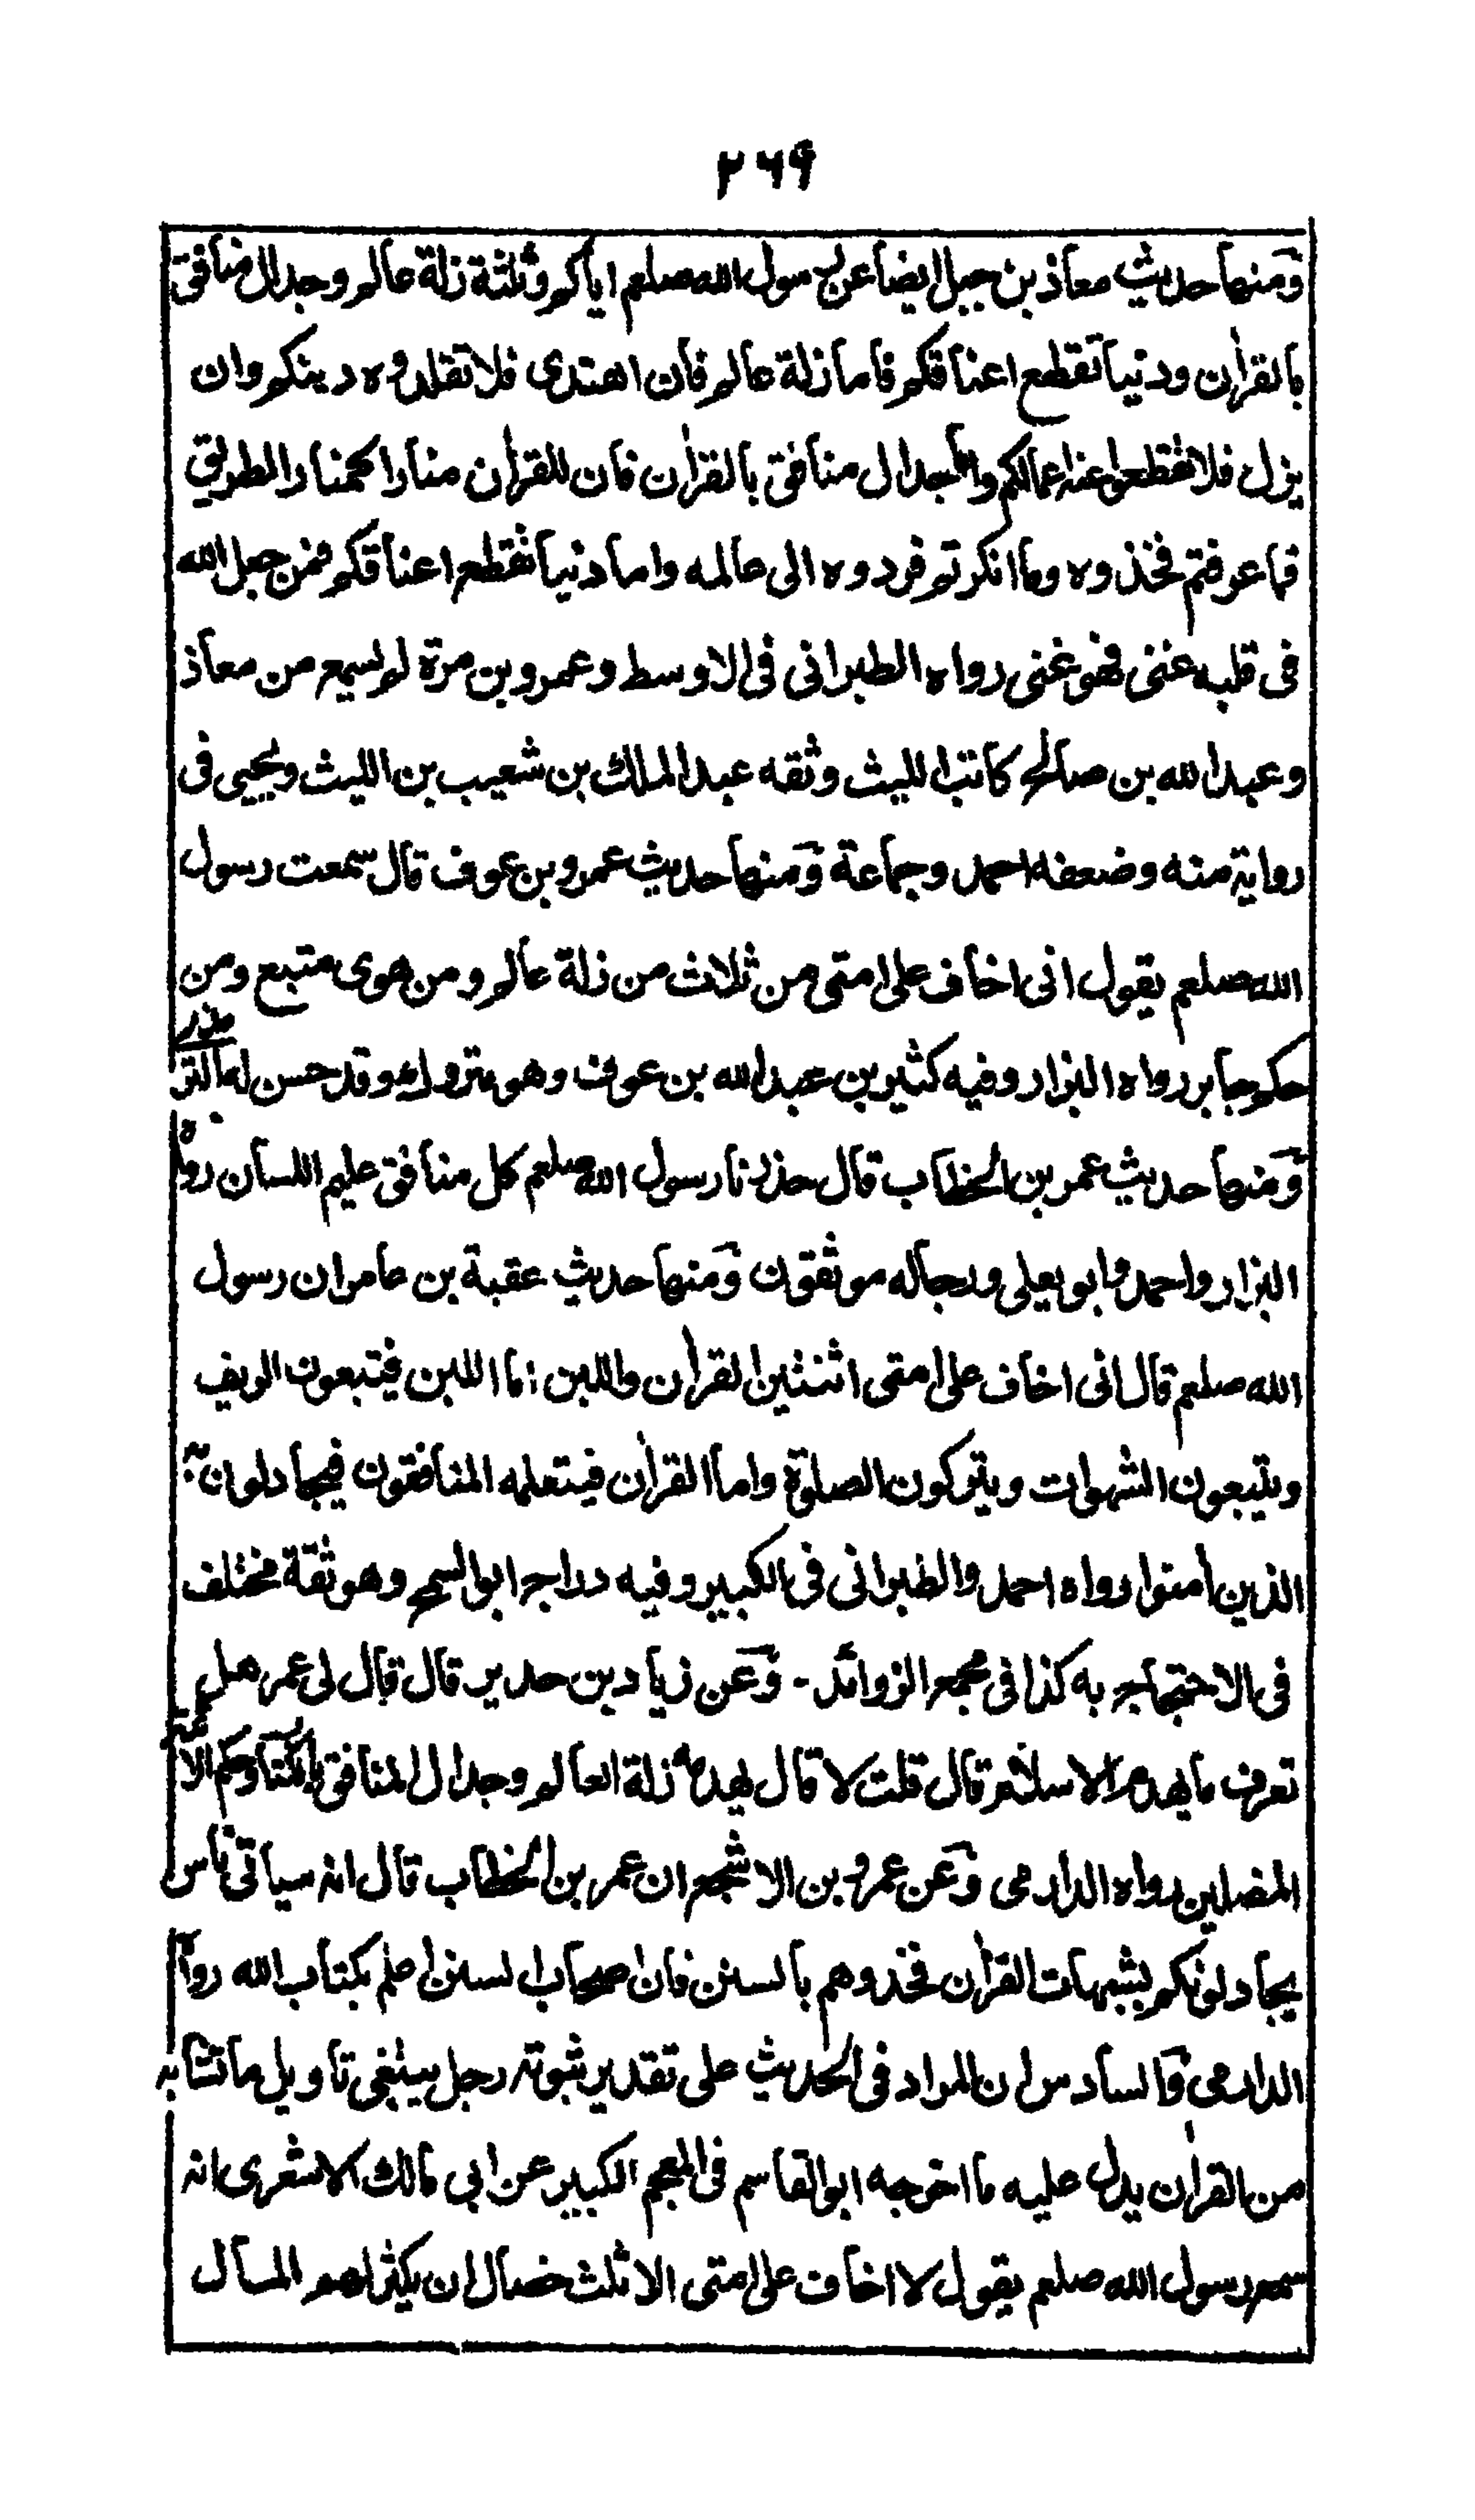 ۲۶۹
ومنها حديث معاذ بن جبل ايضا عن رسول الله صلعم اياكم وثلثة زلة عالم وجدال منافق
بالقرأن ودنيا تقطع اعناقكم فاما زلة عالم فان اهتدى فلا تقلدوه دينكم وان
يزل فلا تقطعوا عنه اعمالكم واما جدال منافق بالقرأن فان للقرأن منارا كمنار الطريق
فما عرفتم فخذوه وما انكرتم فردوه الى عالمه واما دنيا تقطع اعناقكم فمن جعل الله
فى قلبه غنى فهو غنى رواه الطبرانى فى الاوسط وعمرو بن مرة لم يسمع من معاذ
وعبد الله بن صالح كاتب الليث وثقه عبد الملك بن شعيب بن الليث ويحيى فى
رواية منه وضعفه احمد وجماعة ومنها حديث عمرو بن عوف قال سمعت رسول
الله صلعم يقول انى اخاف على امتى من ثلاث من زلة عالم ومن هوى متبع ومن
حكم جابر رواه البزار وفيه كثير بن عبد الله بن عوف وهو متروك وقد حسن له الترمذى
ومنها حديث عمر بن الخطاب قال حذرنا رسول الله صلعم كل منافق عليم اللسان رواه
البزار واحمد وابو يعلى ورجاله موثقون ومنها حديث عقبة بن عامر ان رسول
الله صلعم قال انى اخاف على امتى اثنتين القرأن واللبن اما اللبن فيتبعون الريف
ويتبعون الشهوات ويتركون الصلوة واما القرأن فيتعلمه المنافقون فيجادلون به
الذين أمنوا رواه احمد والطبرانى فى الكبير وفيه دراج ابو السمح وهو ثقة مختلف
فى الاحتجاج به كذا فى مجمع الزوائد - وعن زياد بن حدير قال قال لى عمر هل
تعرف ما يهدم الاسلام قال قلت لا قال يهدمه زلة العالم وجدال المنافق بالكتاب وحكم الائمة
المضلين رواه الدارمى وعن عمرو بن الاشجع ان عمر بن الخطاب قال انه سياتى ناس
يجادلونكم بشبهات القرأن فخذوهم بالسنن فان اصحاب السنن اعلم بكتاب الله رواه
الدارمى والسادس ان المراد فى الحديث على تقدير ثبوته رجل يبتغى تاويل ما تشابه
من القرأن يدل عليه ما اخرجه ابو القاسم فى المعجم الكبير عن ابى مالك الاشعرى انه
سمع رسول الله صلعم يقول لا اخاف على امتى الا ثلث خصال ان يكثر لهم المال